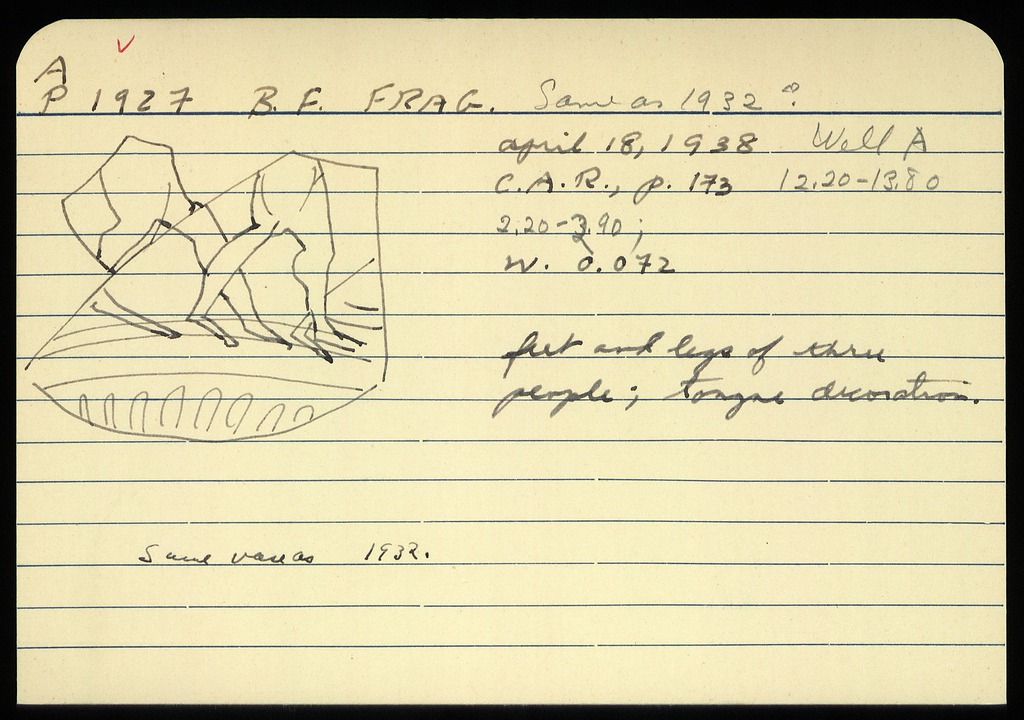 A
P 1927 B. F. FRAG. Same as 1932?
april 18, 1938 Well A
C.A.R., p. 173 12.20-13.80
2.20-3.90;
W. 0.072
feet and legs of three
people; tongue decoration.
Same vase as 1932.